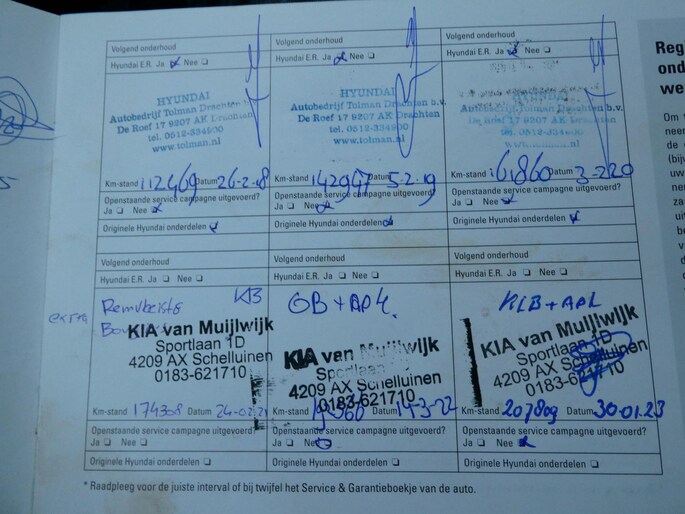 Volgend onderhoud
Hyundai E.R. Ja Nee
HYUNDAI
Autobedrijf Tolman Drachten b.v.
De Roef 17 9207 AK Drachten
tel. 0512-334600
www.tolman.nl
Km-stand 112469 Datum 26-2-18
Openstaande service campagne uitgevoerd?
Ja Nee
Originele Hyundai onderdelen
Volgend onderhoud
Hyundai E.R. Ja Nee
HYUNDAI
Autobedrijf Tolman Drachten b.v.
De Roef 17 9207 AK Drachten
tel. 0512-334600
www.tolman.nl
Km-stand 142947 Datum 5-2-19
Openstaande service campagne uitgevoerd?
Ja Nee
Originele Hyundai onderdelen
Volgend onderhoud
Hyundai E.R. Ja Nee
HYUNDAI
Autobedrijf Tolman Drachten b.v.
De Roef 17 9207 AK Drachten
tel. 0512-334600
www.tolman.nl
Km-stand 161860 Datum 3-2-20
Openstaande service campagne uitgevoerd?
Ja Nee
Originele Hyundai onderdelen
Volgend onderhoud
Hyundai E.R. Ja Nee
extra
KIA van Muijlwijk
Sportlaan 1D
4209 AX Schelluinen
0183-621710
Km-stand 174308 Datum 24-02-21
Openstaande service campagne uitgevoerd?
Ja Nee
Originele Hyundai onderdelen
Volgend onderhoud
Hyundai E.R. Ja Nee
GB + APK
KIA van Muijlwijk
Sportlaan 1D
4209 AX Schelluinen
0183-621710
Km-stand Datum 14-3-22
Openstaande service campagne uitgevoerd?
Ja Nee
Originele Hyundai onderdelen
Volgend onderhoud
Hyundai E.R. Ja Nee
KLB + APK
KIA van Muijlwijk
Sportlaan 1D
4209 AX Schelluinen
0183-621710
Km-stand 207809 Datum 30-01-23
Openstaande service campagne uitgevoerd?
Ja Nee
Originele Hyundai onderdelen
* Raadpleeg voor de juiste interval of bij twijfel het Service & Garantieboekje van de auto.